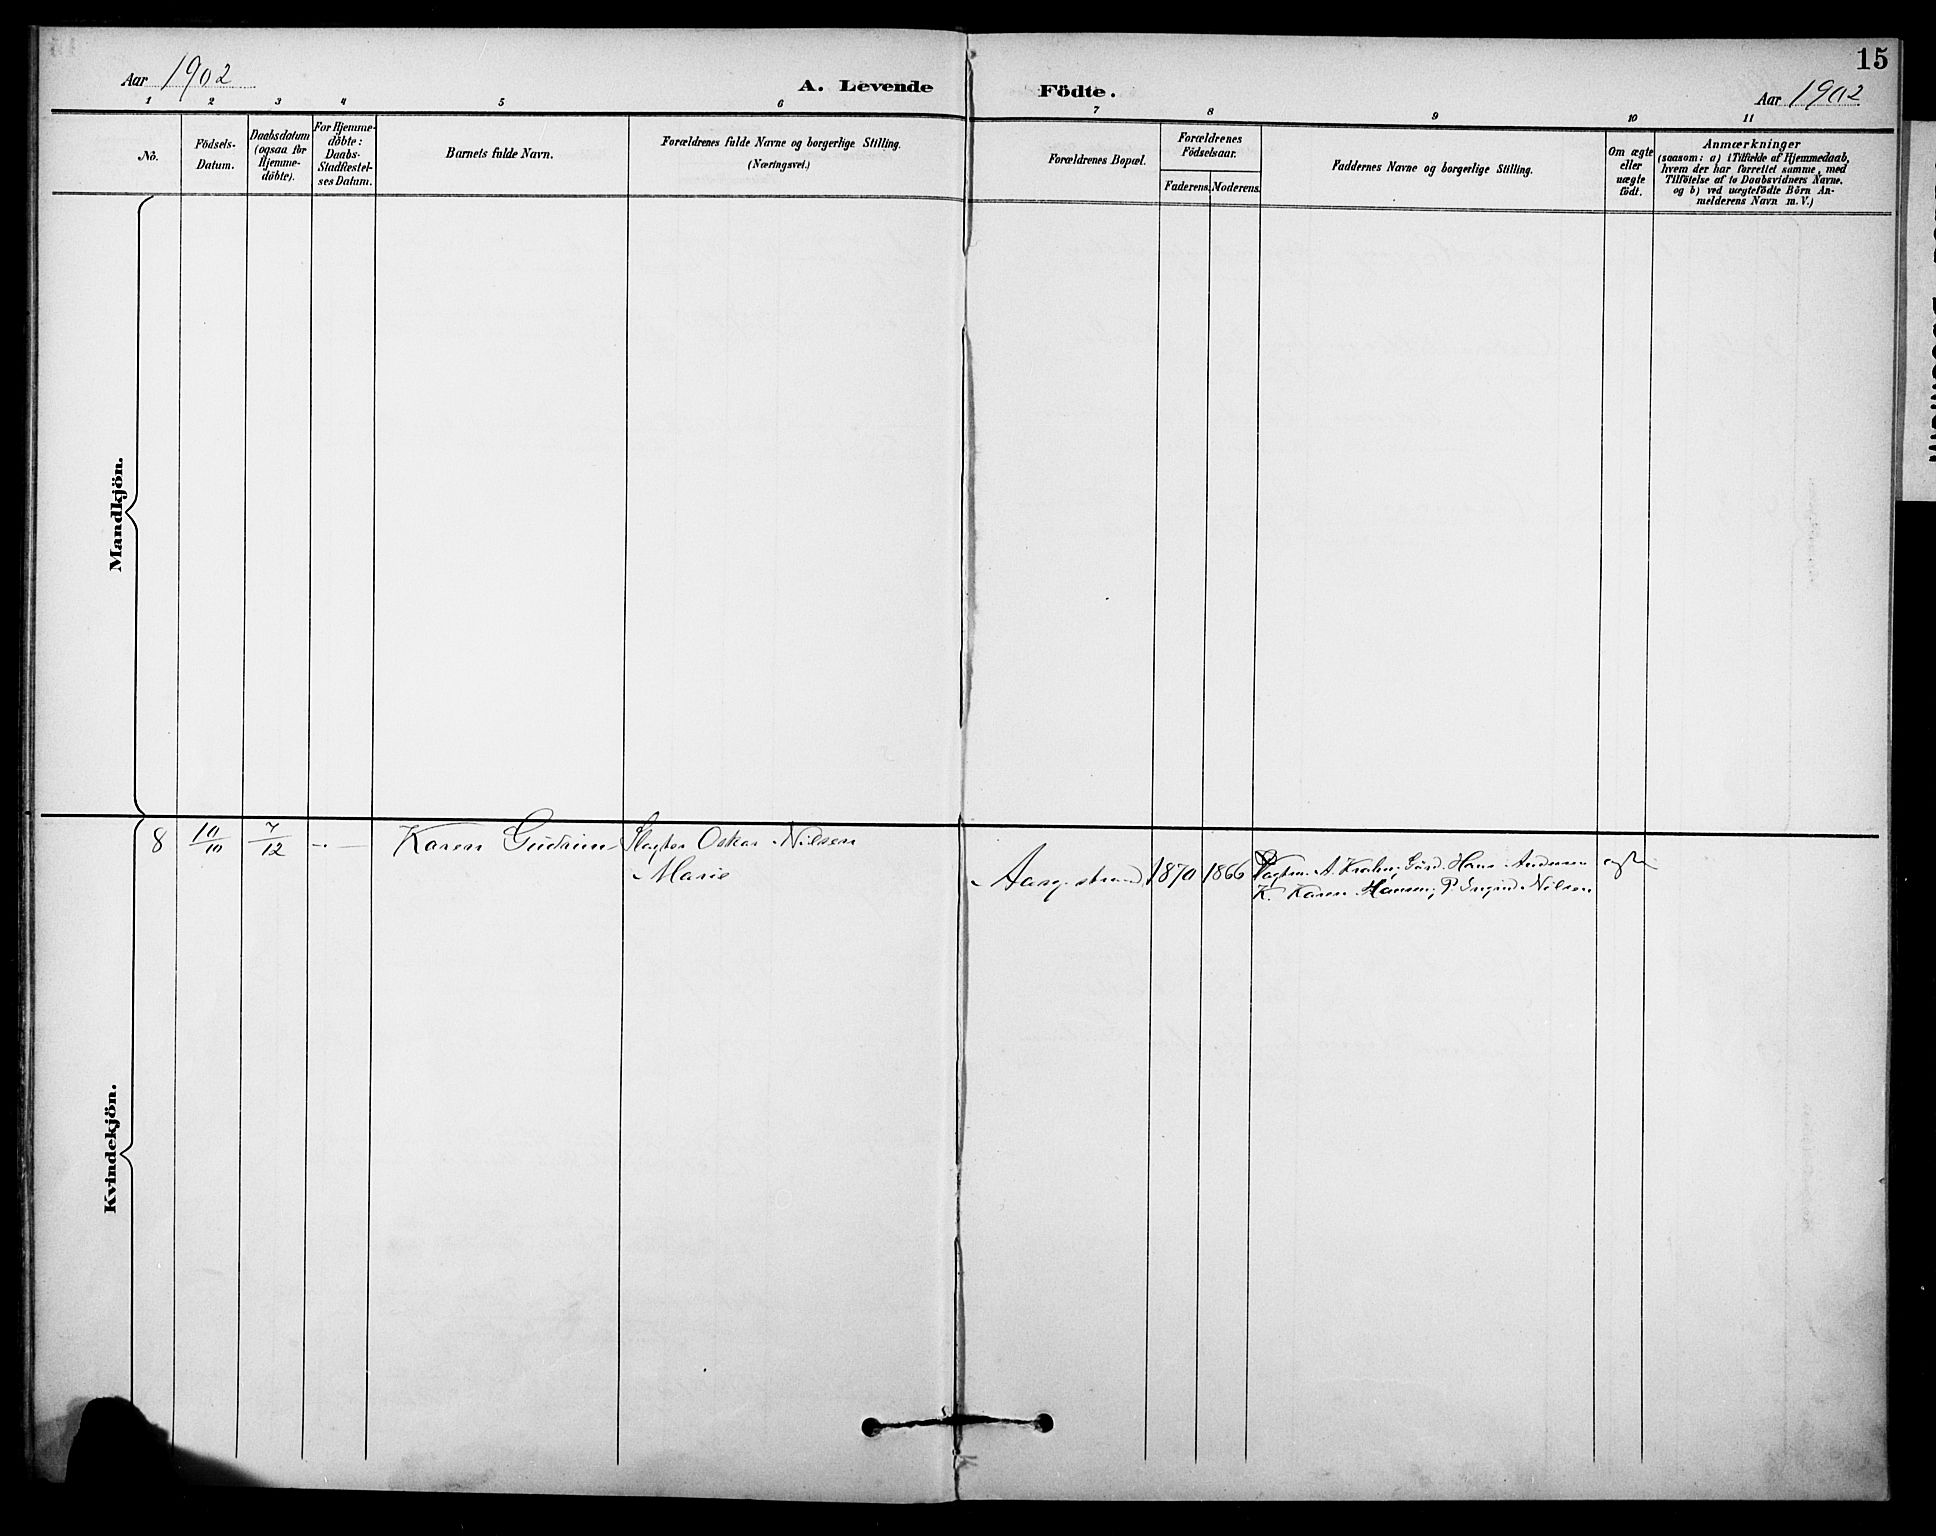 15
Aar 1902
A. Levende Födte.
Aar 1902
1 2 3 4 5 6 7 8 9 10 11
No.
Födsels-
Datum.
Daabsdatum
(ogsaa for
Hjemme-
döbte).
For Hjemme-
döbte:
Daabs-
Stadfæstel-
ses Datum.
Barnets fulde Navn.
Forældrenes fulde Navne og borgerlige Stilling.
(Næringsvei.)
Forældrenes Bopæl.
Forældrenes
Födselsaar.
Faderens. Moderens.
Faddernes Navne og borgerlige Stilling.
Om ægte
eller
uægte
födt.
Anmærkninger
(saasom: a) i Tilfælde af Hjemmedaab,
hvem der har forrettet samme, med
Tilföielse af to Daabsvidners Navne,
og b) ved uægtefödte Börn An-
melderens Navn m. V.)
Mandkjön.
Kvindekjön.
8 10/10 7/12 Karen Gudrun Slagter Oskar Nilsen
Marie
Aasgstrand 1870 1866
A. Gård. Hans Andersen
K. Karen Hansen; P. Ingrid Nilsen
ægte